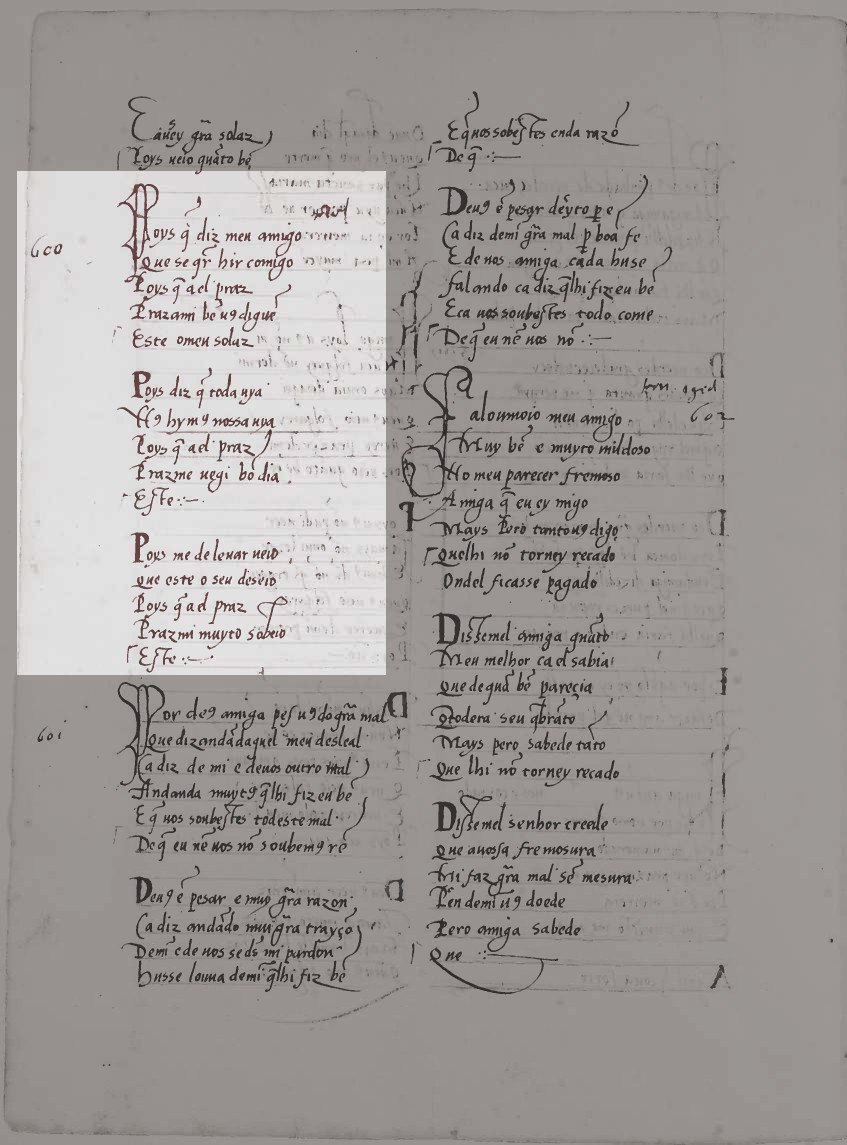 Eauey grã solaz
Poys ueio quãto bẽ
600
Poys q̃ diz meu amigo
Que se q̃r hir comigo
Poys q̃ a el praz
Praz ami bẽ u9 digue
Este o meu solaz
Poys diz q̃ toda uya
N9 hym9 nossa uya
Poys q̃ a el praz
Praz me uegi bõ dia
Este :—
Poys me de leuar ueio
que este o seu deseio
Poys q̃ a el praz
Praz mi muyto sobeio
Este :—
601
Por de9 amiga pes u9 do grã mal
Que diz andãdaquel meu desleal
Ca diz de mi e deuos outro tal
Andando muyt9 q̃lhi fiz eu bẽ
E q̃ uos soubestes todeste mal
De q̃ eu nẽ uos nõ soubem9 rẽ
Deu9 ẽ pesar e muy grã razon
Ca diz andãdo mui grã trayçõ
De mĩ e de uos se ds̃ mi pardon
husse louua demĩ q̃lhi fiz bẽ
E q̃ uos sobestes enda razõ
De q̃ :—
Deu9 ẽ pesar deyto p̱ e
Ca diz demi grã mal p̱ boa fe
E de uos amiga cada husse
falando ca diz q̃lhi fiz eu bẽ
E ca uos soubestes todo come
De q̃ eu nẽ uos nõ :—
602
Falou moio meu amigo
Muy bẽ e muyto mildoso
No meu parecer fremoso
Amiga q̃ eu ey migo
Mays Pero tanto u9 digo
Quelhi nõ torney recado
Ondel ficasse pagado
Dissemel amiga quãto
Meu melhor ca el sabia
Que de quã bẽ parecia
Q̃ todera seu q̃brãto
Mays pero sabede tãto
Que lhi nõ torney recado
Dissemel senhor creede
Que a uossa fremosura
Mi faz grã mal sẽ mesura
Pẽn demĩ u9 doede
Pero amiga sabede
Que :—